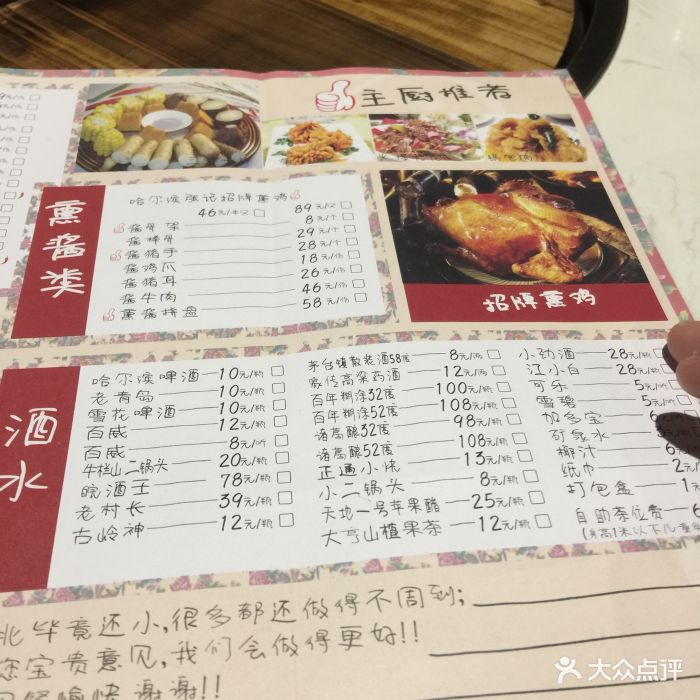 主厨推荐
熏酱类
哈尔滨张记招牌熏鸡
46元/半只 89元/只
酱骨架 8元/个
酱棒骨 29元/个
酱猪手 28元/个
酱鸡爪 18元/份
酱猪耳 26元/份
酱牛肉 46元/份
熏酱拼盘 58元/份
招牌熏鸡
酒水
哈尔滨啤酒 10元/瓶
老青岛 10元/瓶
雪花啤酒 10元/瓶
百威 12元/瓶
百威 8元/听
牛栏山二锅头 20元/瓶
皖酒王 78元/瓶
老村长 39元/瓶
古岭神 12元/瓶
茅台镇散装酒58度 8元/两
家传高粱药酒 12元/两
百年糊涂32度 100元/瓶
百年糊涂52度 108元/瓶
诸葛酿32度 98元/瓶
诸葛酿52度 108元/瓶
正通小烧 13元/瓶
小二锅头 8元/瓶
天地一号苹果醋 25元/瓶
大亨山楂果茶 12元/瓶
小劲酒 28元/瓶
江小白 28元/瓶
可乐 5元/听
雪碧 5元/听
加多宝 6
矿泉水
椰汁 6
纸巾 2元/
打包盒 1元/
自助茶位费 6
(身高1米以下儿童
北毕竟还小,很多都还做得不周到;
您宝贵意见,我们会做得更好!!
愉快 谢谢!!
大众点评